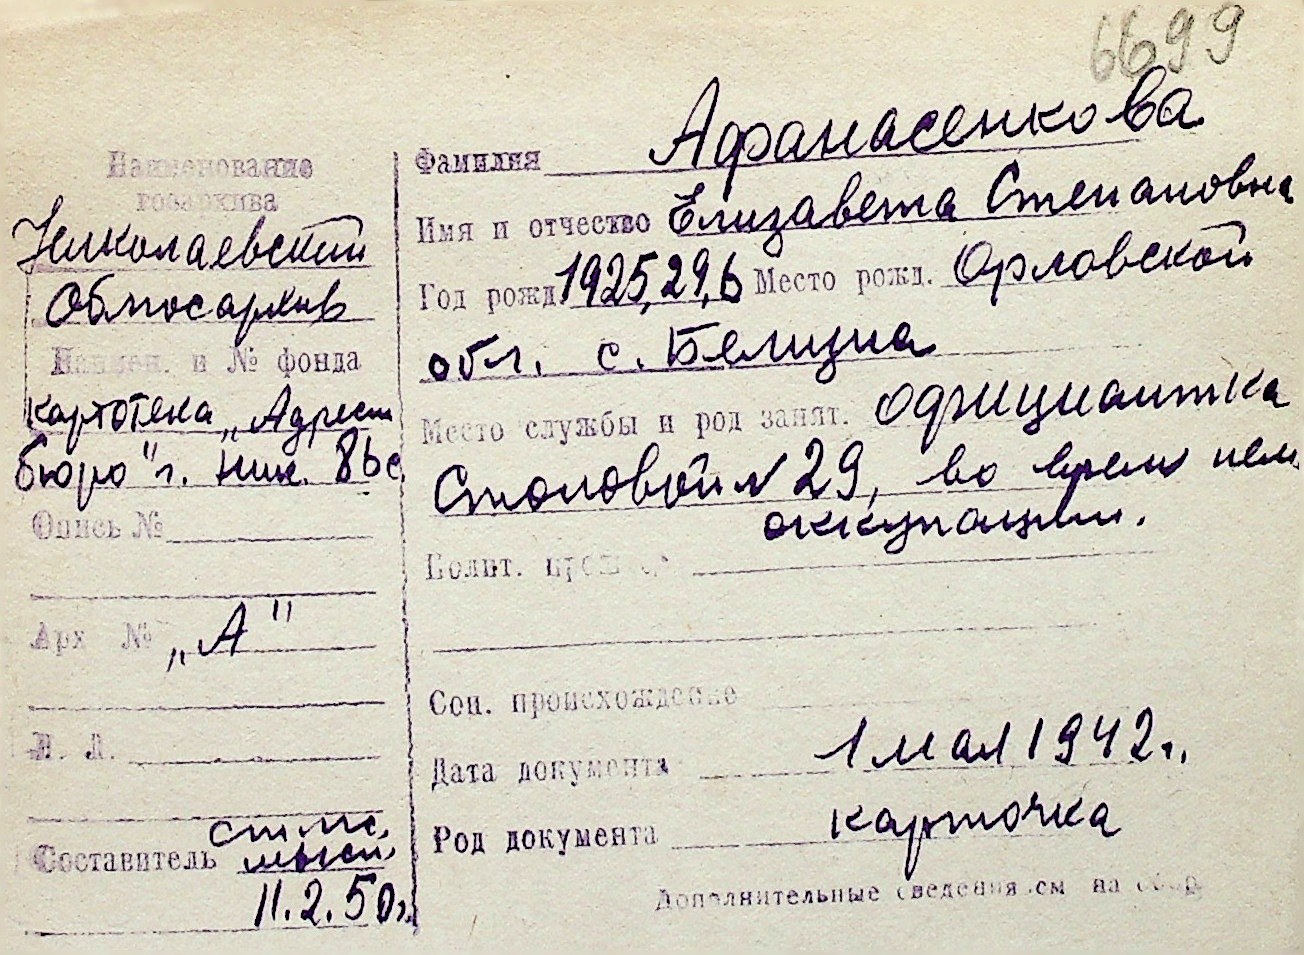 6699
Наименование
госархива
Николаевский
Облгосархив
Наимен. и № фонда
картотека „Адресн
бюро" г. Ник. 86с
Опись №
Арх №
„А"
Л. Л.
Составитель
11.2.50г.
Фамилия Афанасенкова
Имя и отчество Елизавета Степановна
Год рожд 1925, 29, 6 Место рожд. Орловской
обл. с. Белизна
Место службы и род занят. официантка
Столовой № 29, во время нем.
оккупации.
Полит. прош
Соц. происхождение
Дата документа 1 мая 1942 г.
Род документа карточка
Дополнительные сведения см на обор